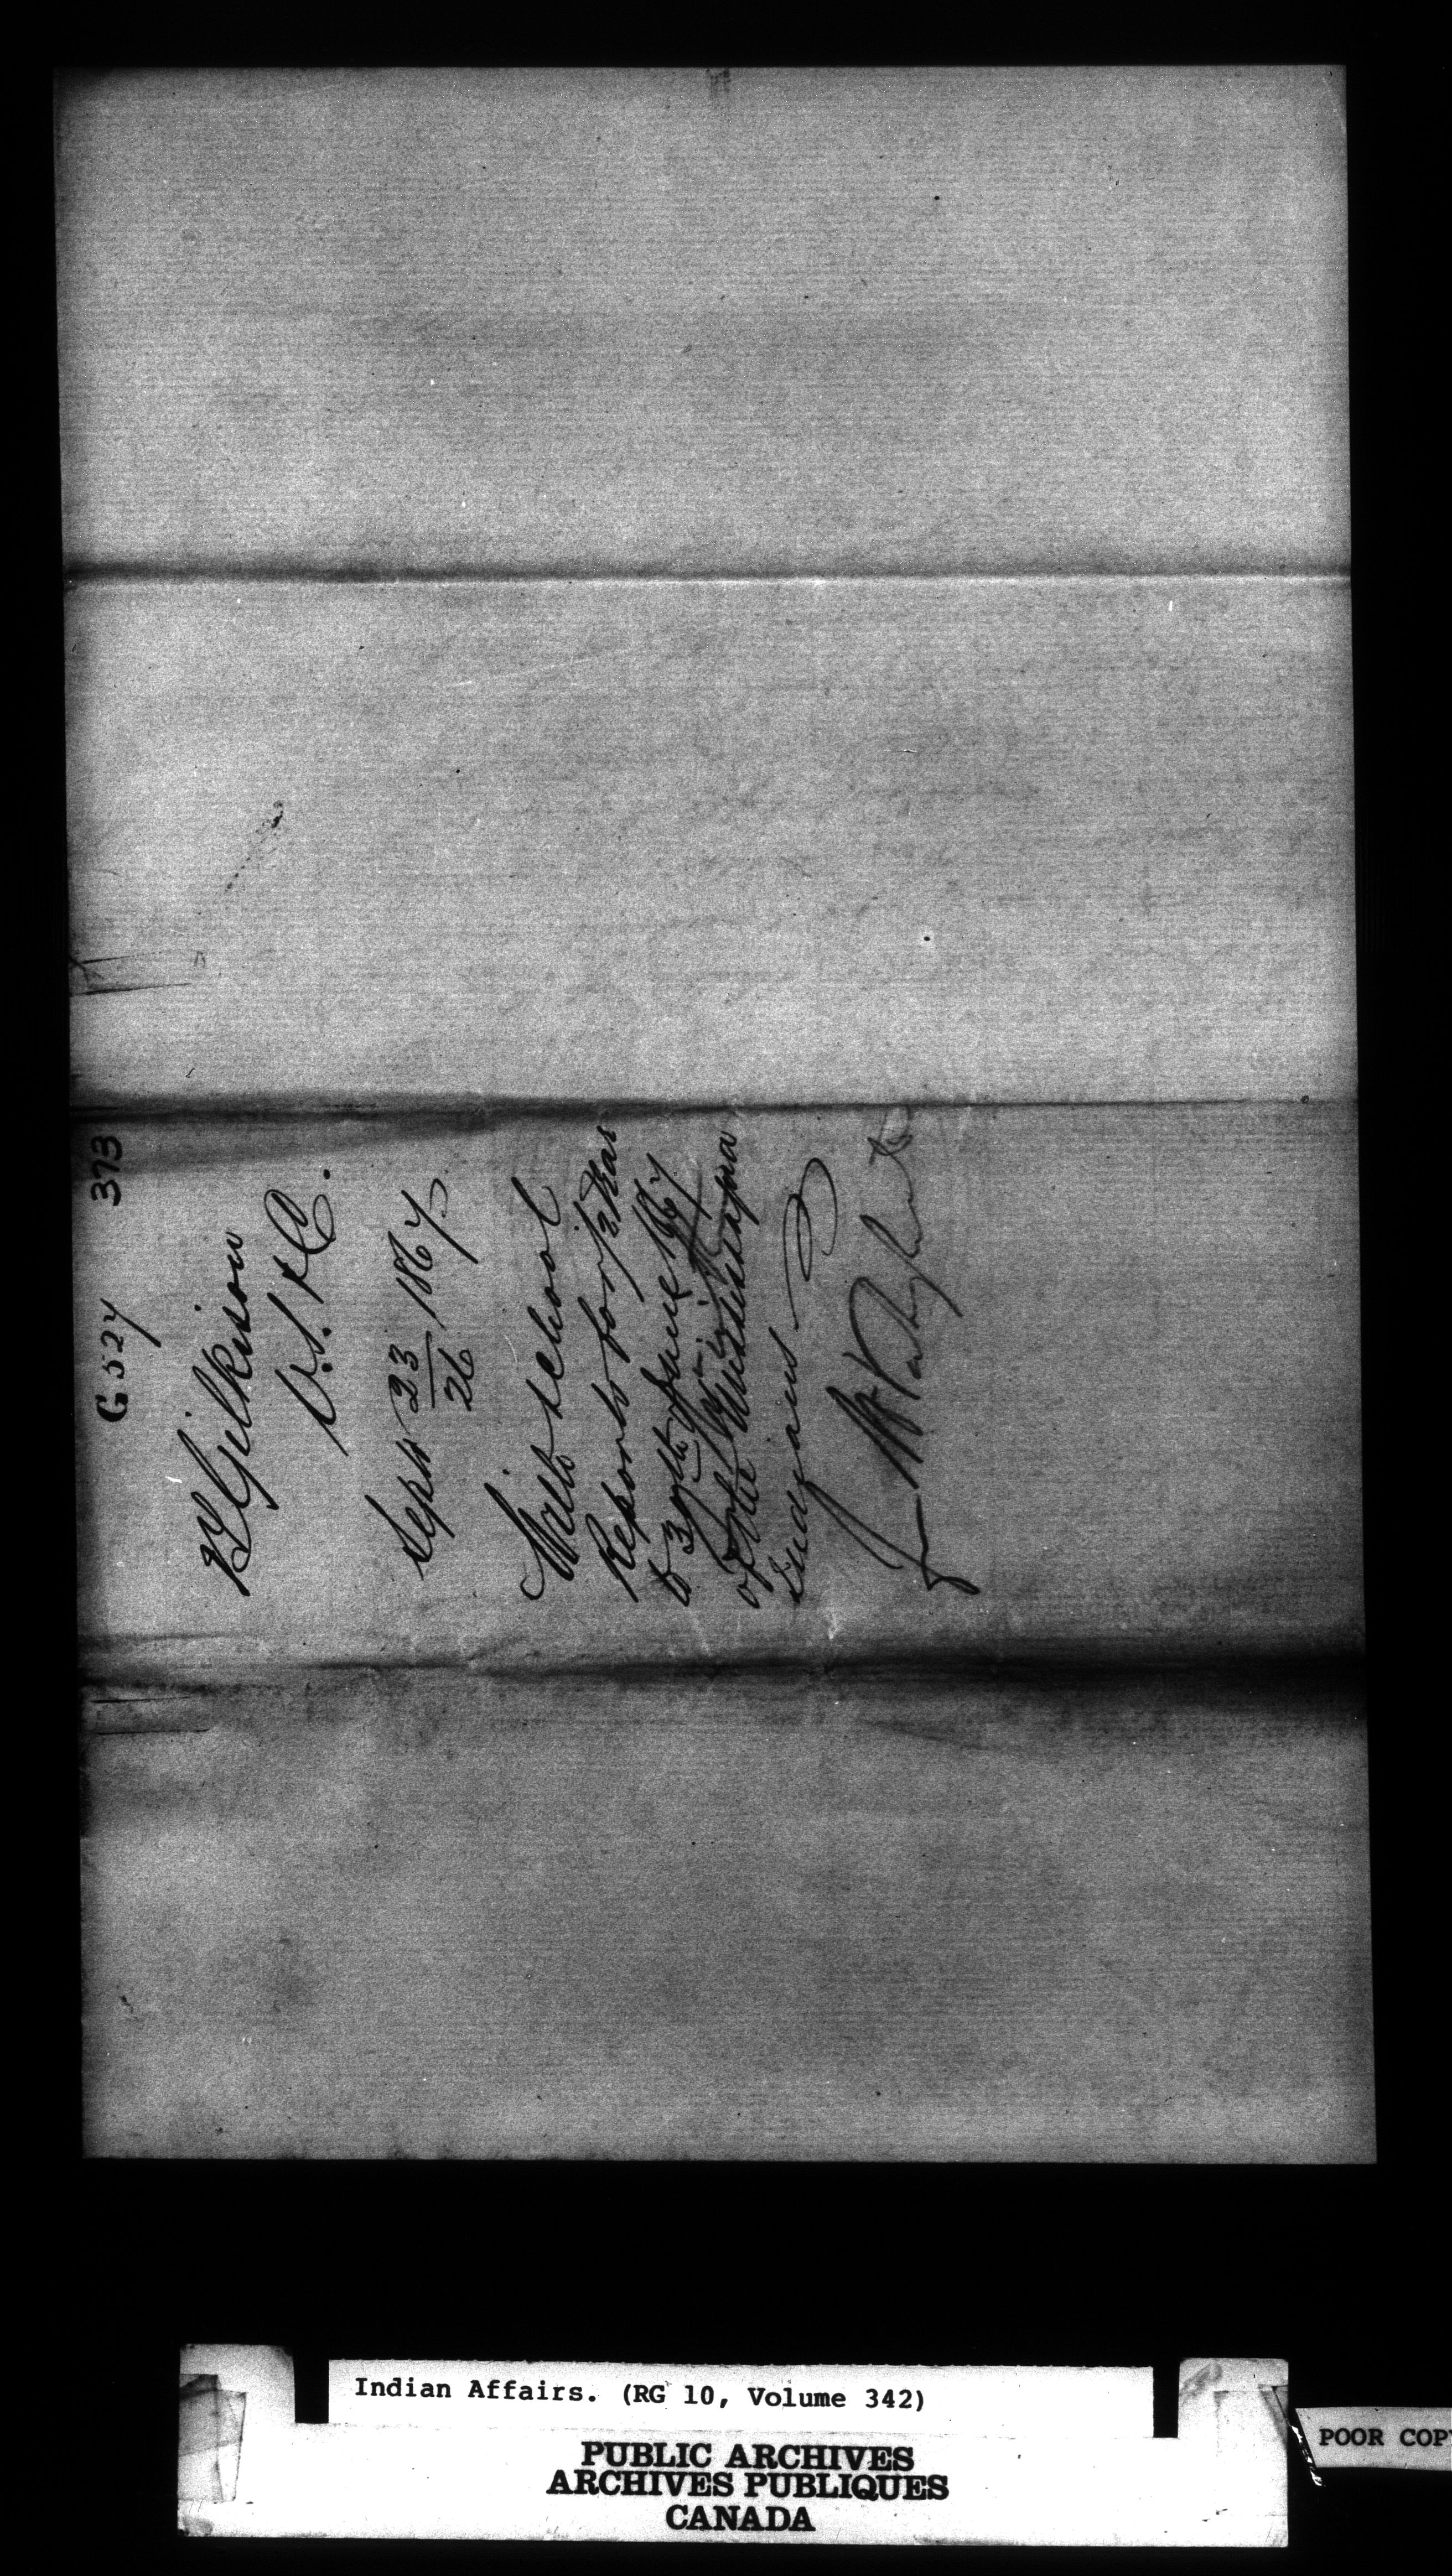 G 527 373
Gilkison
V.S. & C.
Sept 23/26 1867
With school
Reports for ½ Year
to 30th June 1867
of the Mississagua
Indians
Indian Affairs. (RG 10, Volume 342)
PUBLIC ARCHIVES
ARCHIVES PUBLIQUES
CANADA
POOR COPY